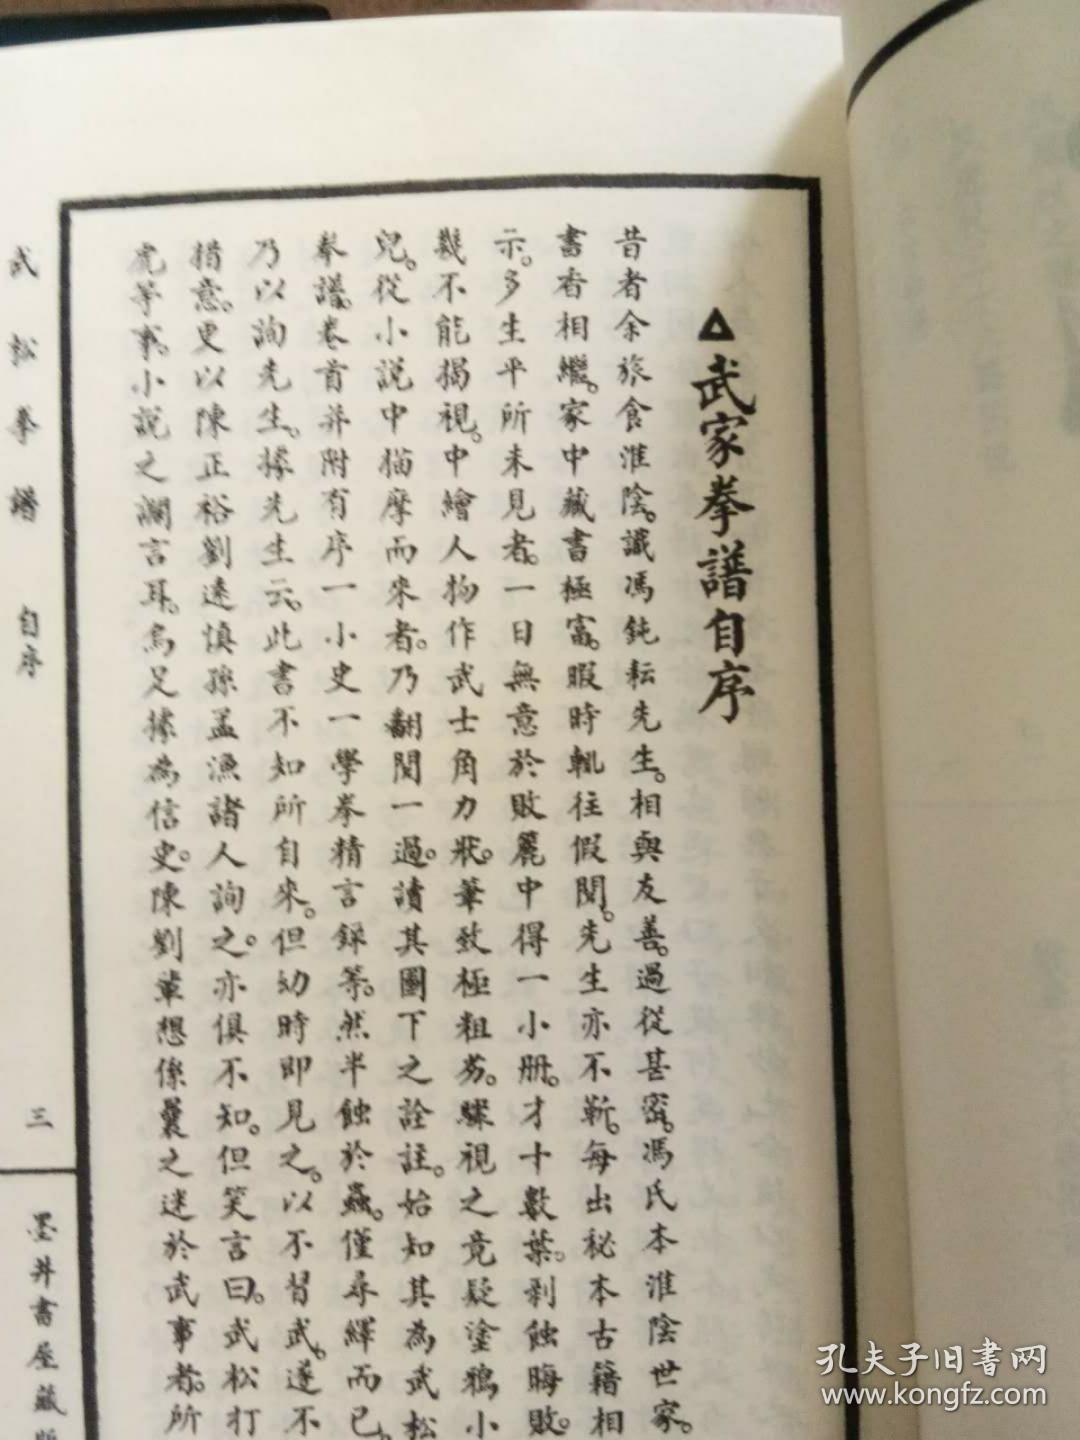 △武家拳譜自序
昔者余旅食淮陰。識馮鈍耘先生。相與友善。過從甚密。馮氏本淮陰世家。
書香相繼。家中藏書極富。暇時輒往假閱。先生亦不靳。每出秘本古籍相
示。多生平所未見者。一日無意於敗簏中得一小册。才十數葉。剥蝕晦敗。
幾不能揭視。中繪人物作武士角力狀。筆致極粗劣。驟視之竟疑塗鴉小
兒。從小說中描摩而來者。乃翻閱一過。讀其圖下之詮註。始知其為武松
拳譜。卷首并附有序一小史一學拳精言錄等。然半蝕於蟲。僅尋繹而已。
乃以詢先生。據先生云。此書不知所自來。但幼時即見之。以不習武。遂不
措意。更以陳正裕劉遠慎孫孟漁諸人詢之。亦俱不知。但笑言曰。武松打
虎等事。小說之讕言耳。烏足據為信史。陳劉輩想係曩之迷於武事者。所
武松拳譜 自序
三
墨井書屋藏
孔夫子旧书网
www.kongfz.com